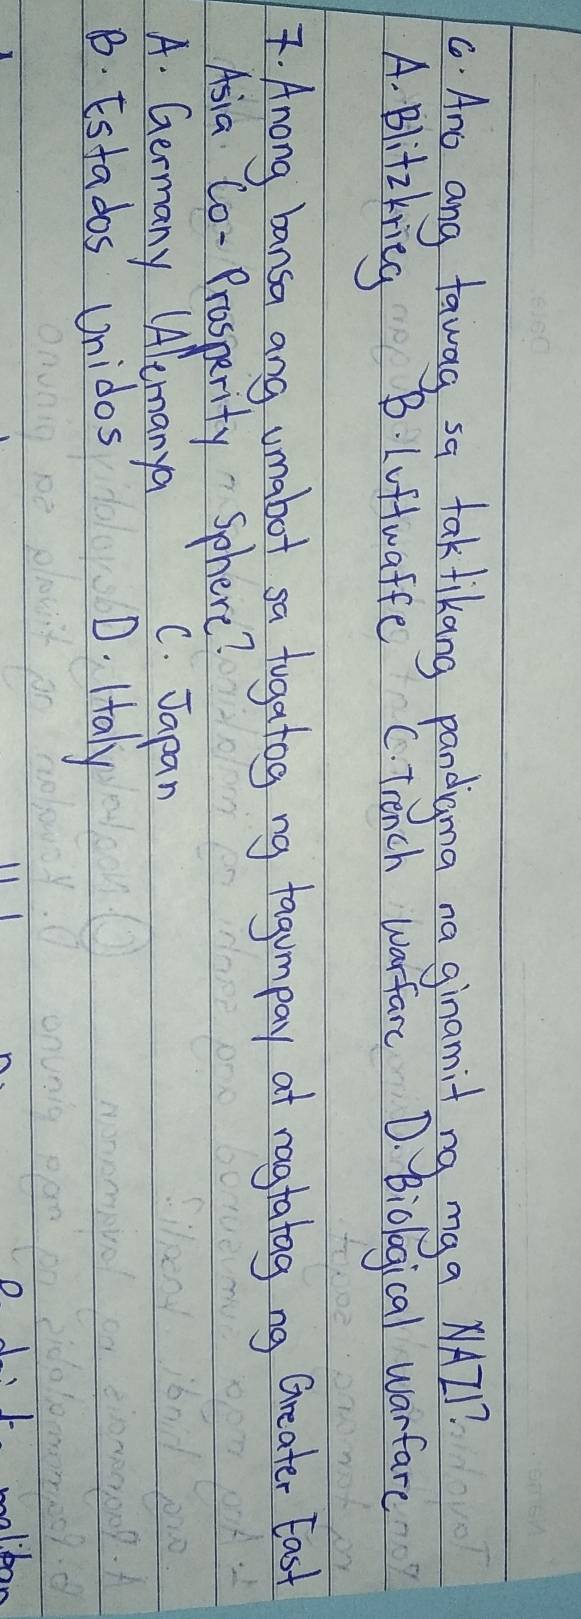 6. Ano ang tawag sa taktikang pandigma na ginamit ng mga NAZI?
A. Blitzkrieg B. Luftwaffe C. Trench Warfare D. Biological Warfare
7. Anong bansa ang umabot sa tugatog ng tagumpay at nagtatag ng Greater East
Asia Co-Prosperity Sphere?
A. Germany (Alemanya C. Japan
B. Estados Unidos D. Italy